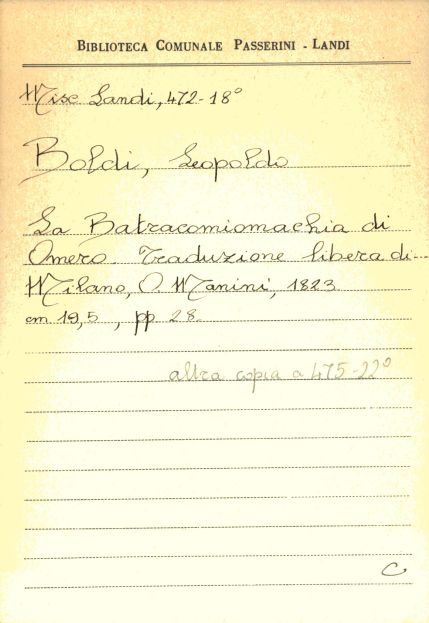 BIBLIOTECA COMUNALE PASSERINI - LANDI
Misc Landi, 472-18°
Boldi, Leopoldo
La Batracomiomachia di
Omero. Traduzione libera di--
Milano, O. Manini, 1823
cm 19,5, pp. 28.
altra copia a 475-22°
C